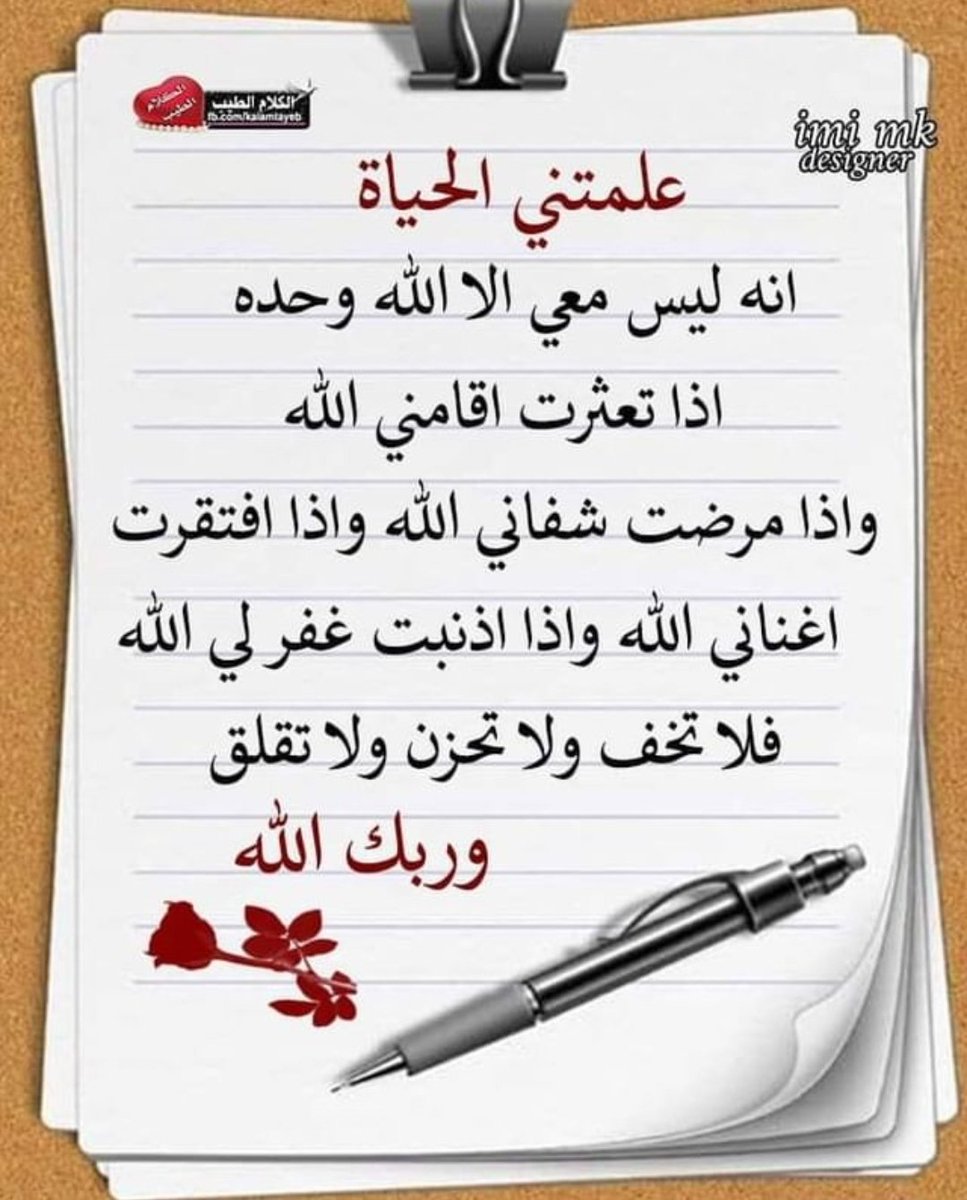 الكلام الطيب
الكلام الطيب
fb.com/kalamtayeb
imi mk
designer
علمتني الحياة
انه ليس معي الا الله وحده
اذا تعثرت اقامني الله
واذا مرضت شفاني الله واذا افتقرت
اغناني الله واذا اذنبت غفر لي الله
فلا تخف ولا تحزن ولا تقلق
وربك الله